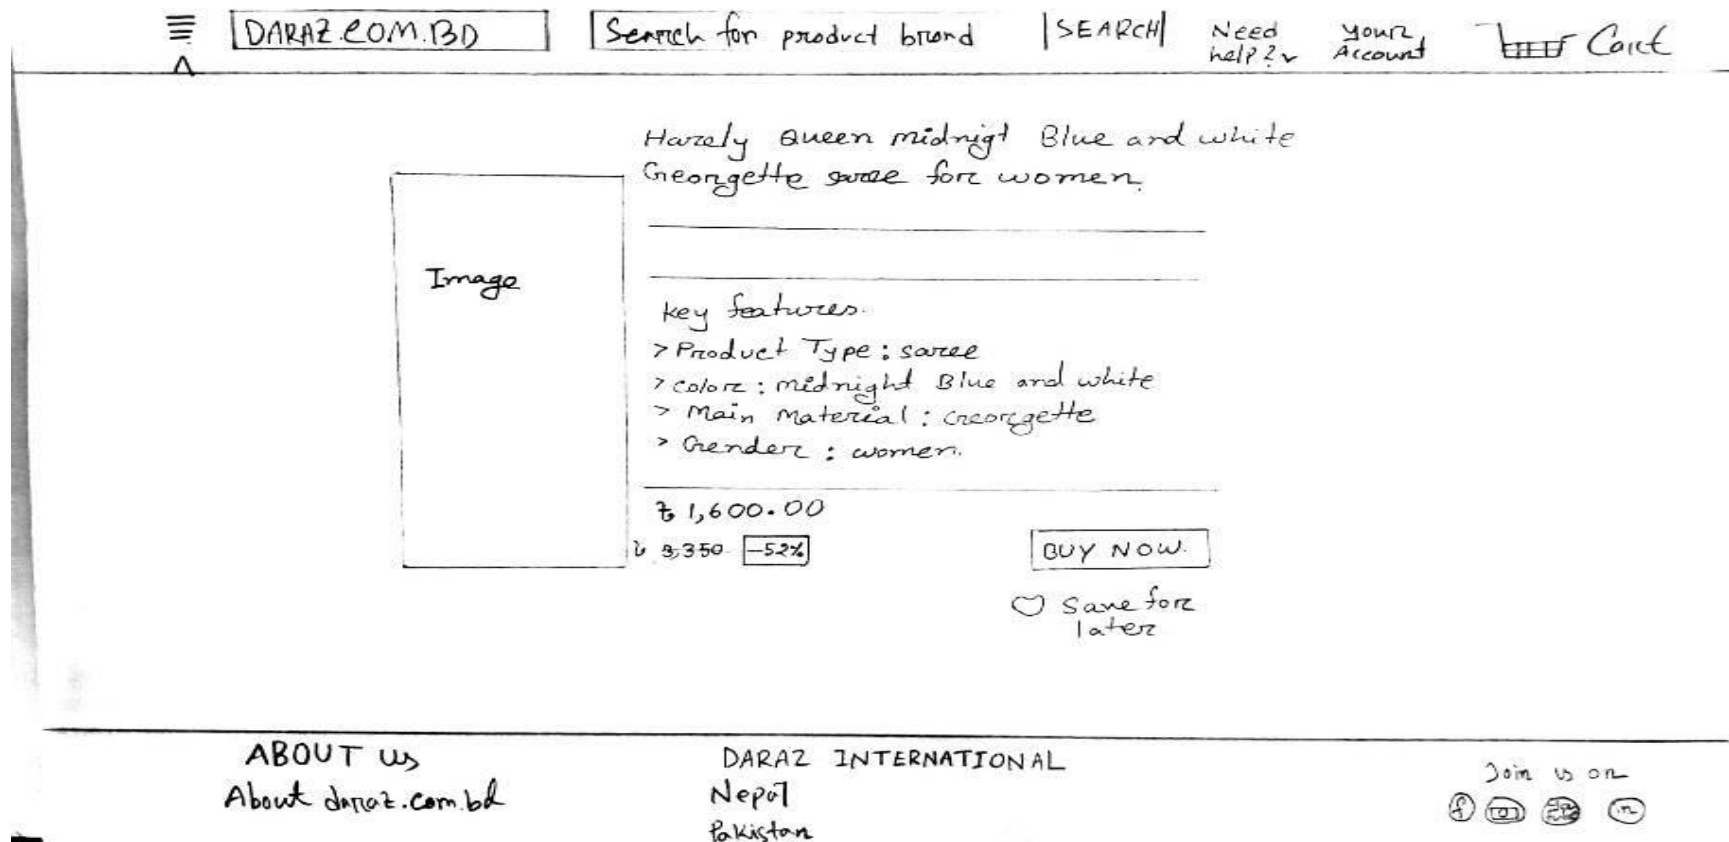 DARAZ.COM.BD
Search for product brand
SEARCH
Need
help?
Your
Account
Cart
Harely Queen midnigt Blue and white
Georgette saree for women.
Image
key features.
> Product Type : saree
> color : midnight Blue and white
> Main Material : Georgette
> Gender : women.
৳ 1,600.00
৳ 3,350 -52%
BUY NOW.
Save for
later
ABOUT Us
About daraz.com.bd
DARAZ INTERNATIONAL
Nepal
Pakistan
Join us on
f
in